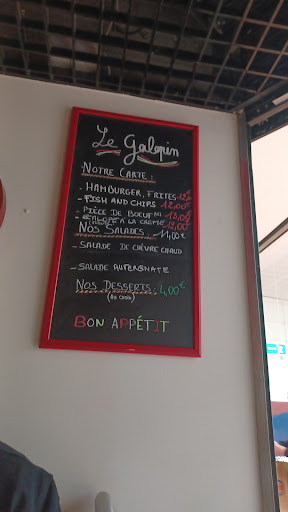 Le Galopin
NOTRE CARTE :
- HAMBURGER, FRITES 12€
- FISH AND CHIPS 12,00€
- PIÈCE DE BOEUF 13,00€
À LA CRÈME 12,00
NOS SALADES. 11,00€
- SALADE DE CHÈVRE CHAUD
- SALADE AUVERGNATE
NOS DESSERTS. 4,00€
(AU CHOIX)
BON APPÉTIT